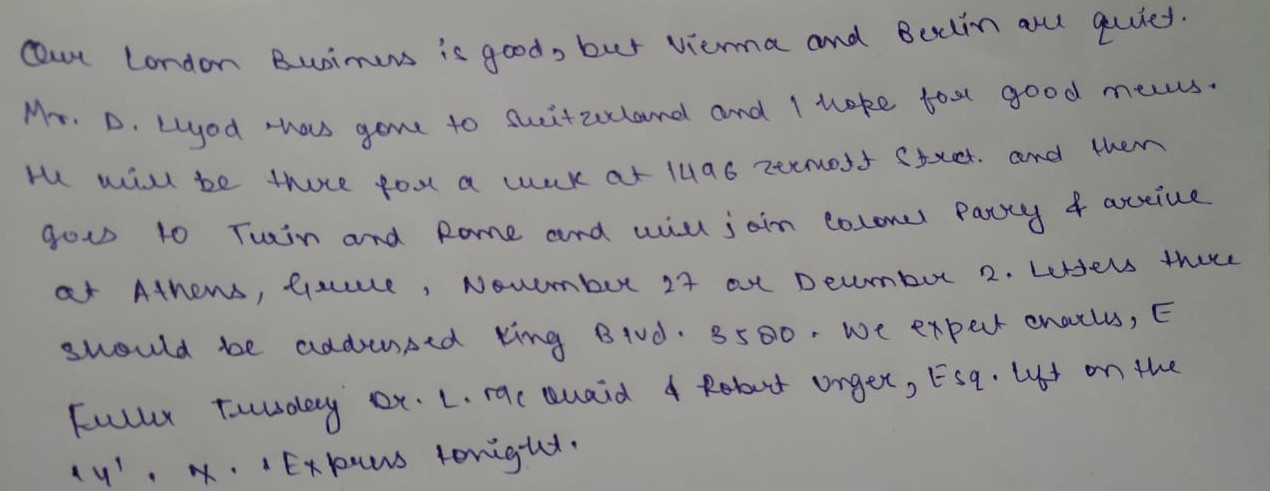 Our London Business is good, but Vienna and Berlin are quiet.
Mr. D. Llyod has gone to Switzerland and I hope for good news.
He will be there for a week at 1496 zermott Street. and then
goes to Turin and Rome and will join Colonel Parry & arrive
at Athens, Greece, November 27 or December 2. Letters there
should be addressed King Blvd. 3580. We expect charles, E
Fuller Tuesday Dr. L. Mc Quaid & Robert Unger, Esq. left on the
'y'. X. 'Express tonight.